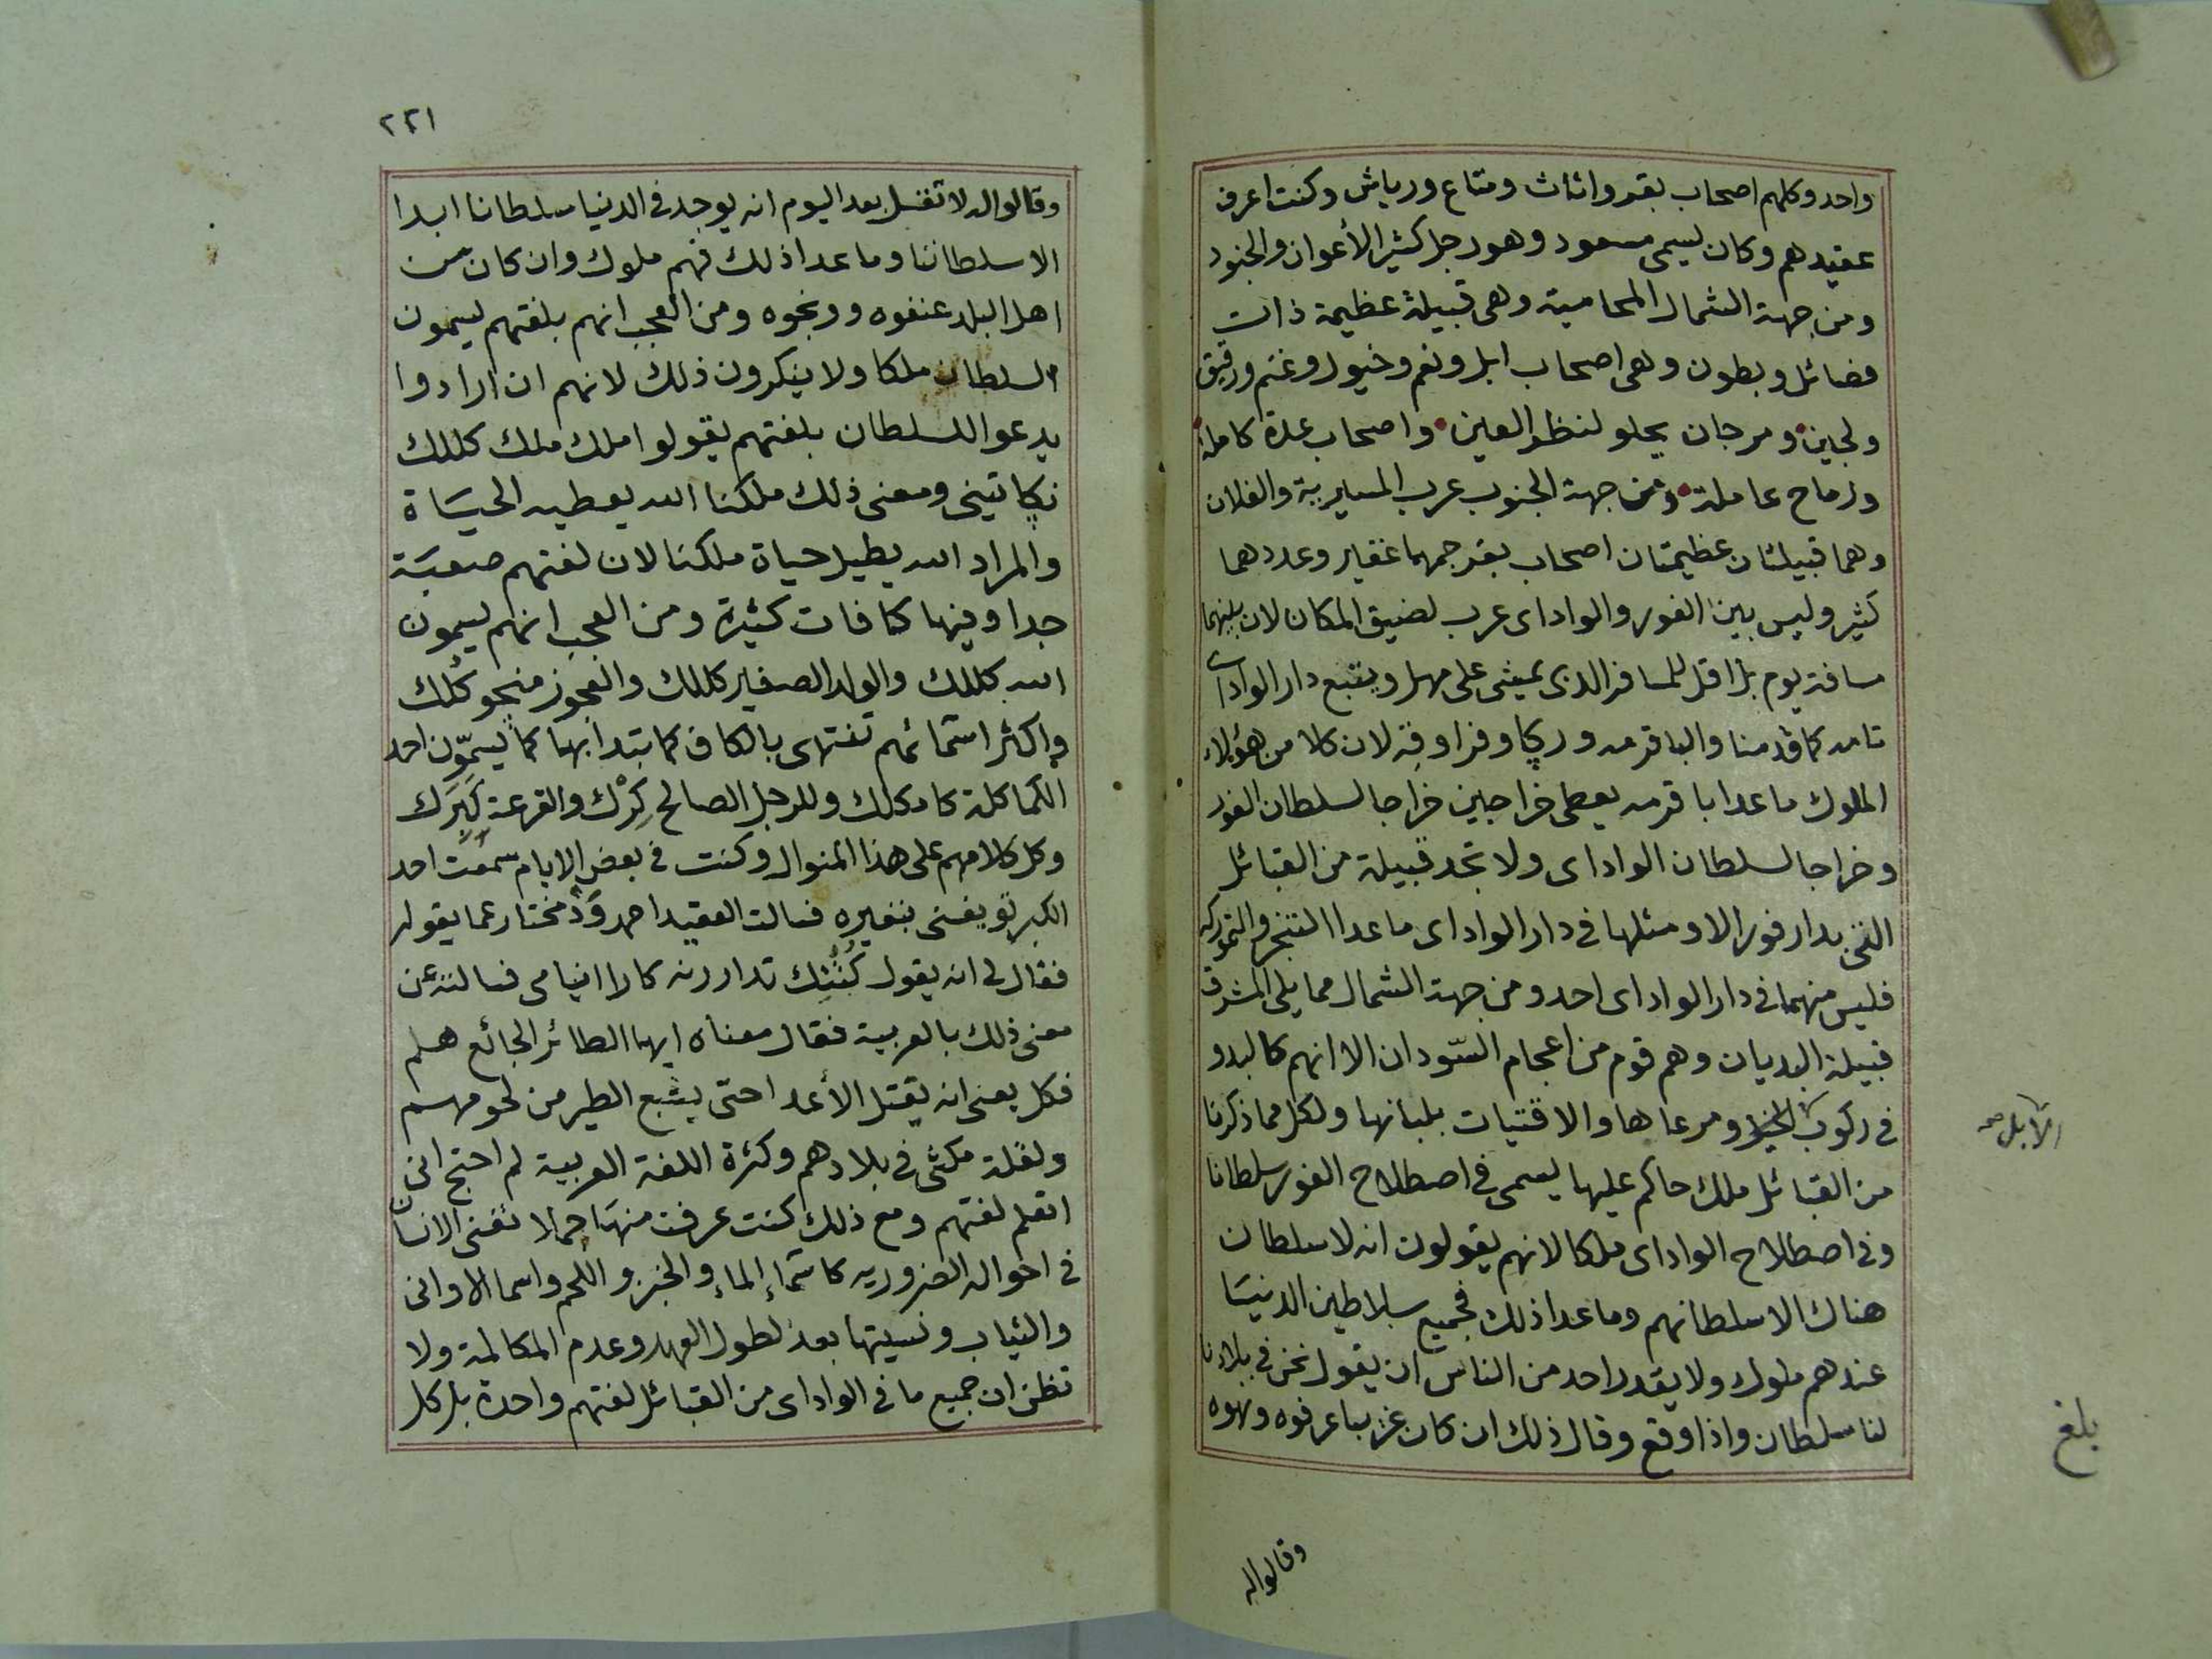 واحد وكلهم اصحاب بقر واثاث ومتاع ورياش وكنت اعرف
عقيدهم وكان يسمى مسعود وهو رجل كثير الأعوان والجنود
ومن جهة الشمال المحامية وهى قبيلة عظيمة ذات
فضائل وبطون وهى اصحاب ابل ونعم وخيول وغنم ورقيق
ولجين ومرجان يحلو لنظر العين واصحاب عدة كاملة
ورماح عاملة ومن جهة الجنوب عرب المسيرية والفلان
وهما قبيلتان عظيمتان اصحاب بقر جمهما غفير وعددهما
كثير وليس بين الفور والواداى عرب لضيق المكان لان بينهما
مسافة يوم بل اقل للمسافر الذى يمشى على مهل ويتبع دار الواداى
تامه كما قدمنا والباقرمه وريكا وفراوقه لان كلا من هؤلاء
الملوك ما عدا باقرمه يعطى خراجين خراجا لسلطان الفور
وخراجا لسلطان الواداى ولا تجد قبيلة من القبائل
التى بدار فور الا ومثلها فى دار الواداى ما عدا التنجر والتموركه
فليس منهما فى دار الواداى احد ومن جهة الشمال مما يلى المشرق
قبيلة البديان وهم قوم من اعجام السّودان الا انهم كالبدو
فى ركوب الخيل ومرعاها والاقتيات بلبانها ولكل مما ذكرنا
الابل صح
من القبائل ملك حاكم عليها يسمى فى اصطلاح الفور سلطانا
وفى اصطلاح الواداى ملكا لانهم يقولون انه لا سلطان
هناك الا سلطانهم وما عدا ذلك فجميع سلاطين الدنيا
عندهم ملوك ولا يقدر احد من الناس ان يقول نحن فى بلادنا
لنا سلطان واذا وقع وقال ذلك ان كان غريبا عرفوه ونهوه
بلغ
وقالوا له
٢٢١
وقالوا له لا تقل بعد اليوم انه يوجد فى الدنيا سلطانا ابدا
الا سلطاننا وما عدا ذلك فهم ملوك وان كان من
اهل البلد عنفوه ووبخوه ومن العجب انهم بلغتهم يسمون
السلطان ملكا ولا ينكرون ذلك لانهم ان ارادوا
يدعوا للسلطان بلغتهم يقولوا ملك ملك كللك
نكاتينى ومعنى ذلك ملكنا الله يعطيه الحياة
والمراد الله يطيل حياة ملكنا لان لغتهم صعبة
جدا وفيها كافات كثيرة ومن العجب انهم يسمون
الله كللك والولد الصغير كللك والعجوز منجو كُلك
واكثر اسمائهم تنتهى بالكاف كما تبتدا بها كما يسمّون احد
الكماكلة كامكلك وللرجل الصالح كِرْك والقرعة كَبَرك
وكل كلامهم على هذا المنوال وكنت فى بعض الايام سمعت احد
الكبرتو يغنى بنفيره فسالت العقيد احمد وَدْ مختار عما يقول
فقال لى انه يقول كُنُتِك تدار رنه كارا انيامى فسالته عن
معنى ذلك بالعربية فقال معناه ايها الطائر الجائع هلم
فكل يعنى انه يقتل الأعدا حتى يشبع الطير من لحومهم
ولقلة مكثى فى بلادهم وكثرة اللغة العربية لم احتج انى
اتعلم لغتهم ومع ذلك كنت عرفت منها جملا تغنى الانسان
فى احواله الضروريه كاسماء الماء والخبز واللحم واسما الاوانى
والثياب ونسيتها بعد لطول العهد وعدم المكالمة ولا
تظن ان جميع ما فى الواداى من القبائل لغتهم واحدة بل كل